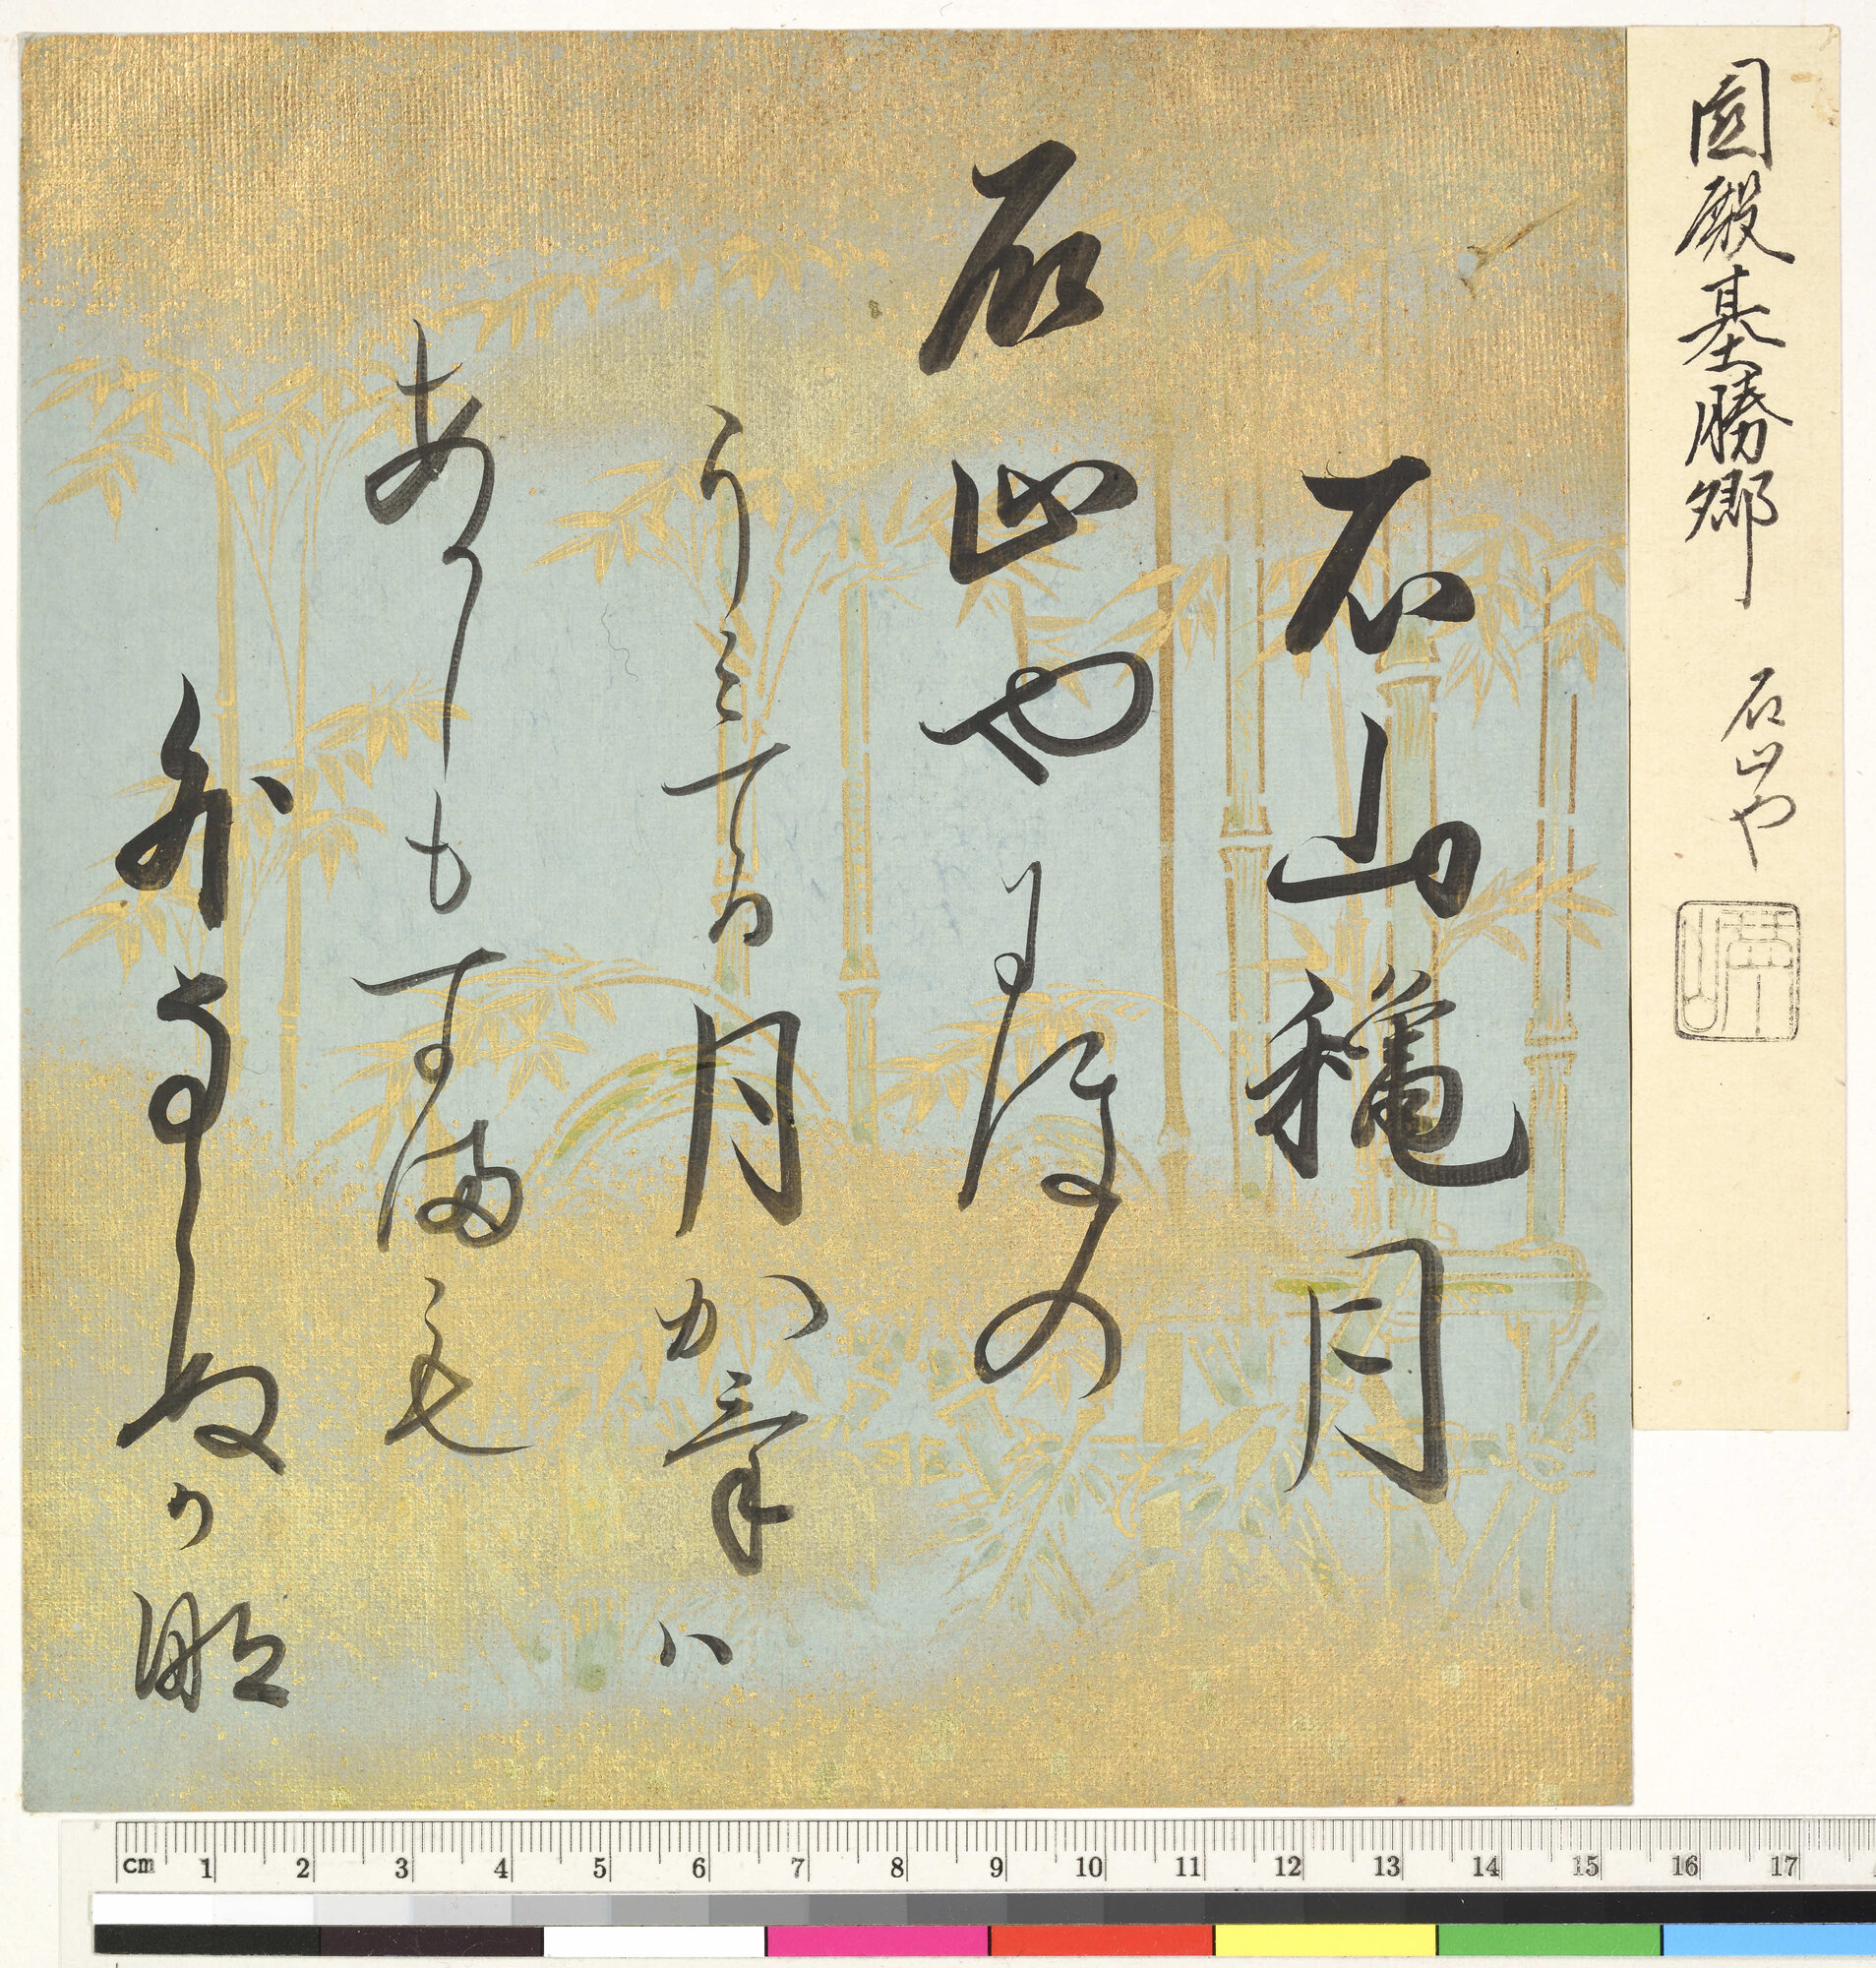 園殿基勝卿 石山や
石山龝月
石山やにほの
うみてる月かけハ
あかしもすまも
外ならぬか那
cm 1 2 3 4 5 6 7 8 9 10 11 12 13 14 15 16 17